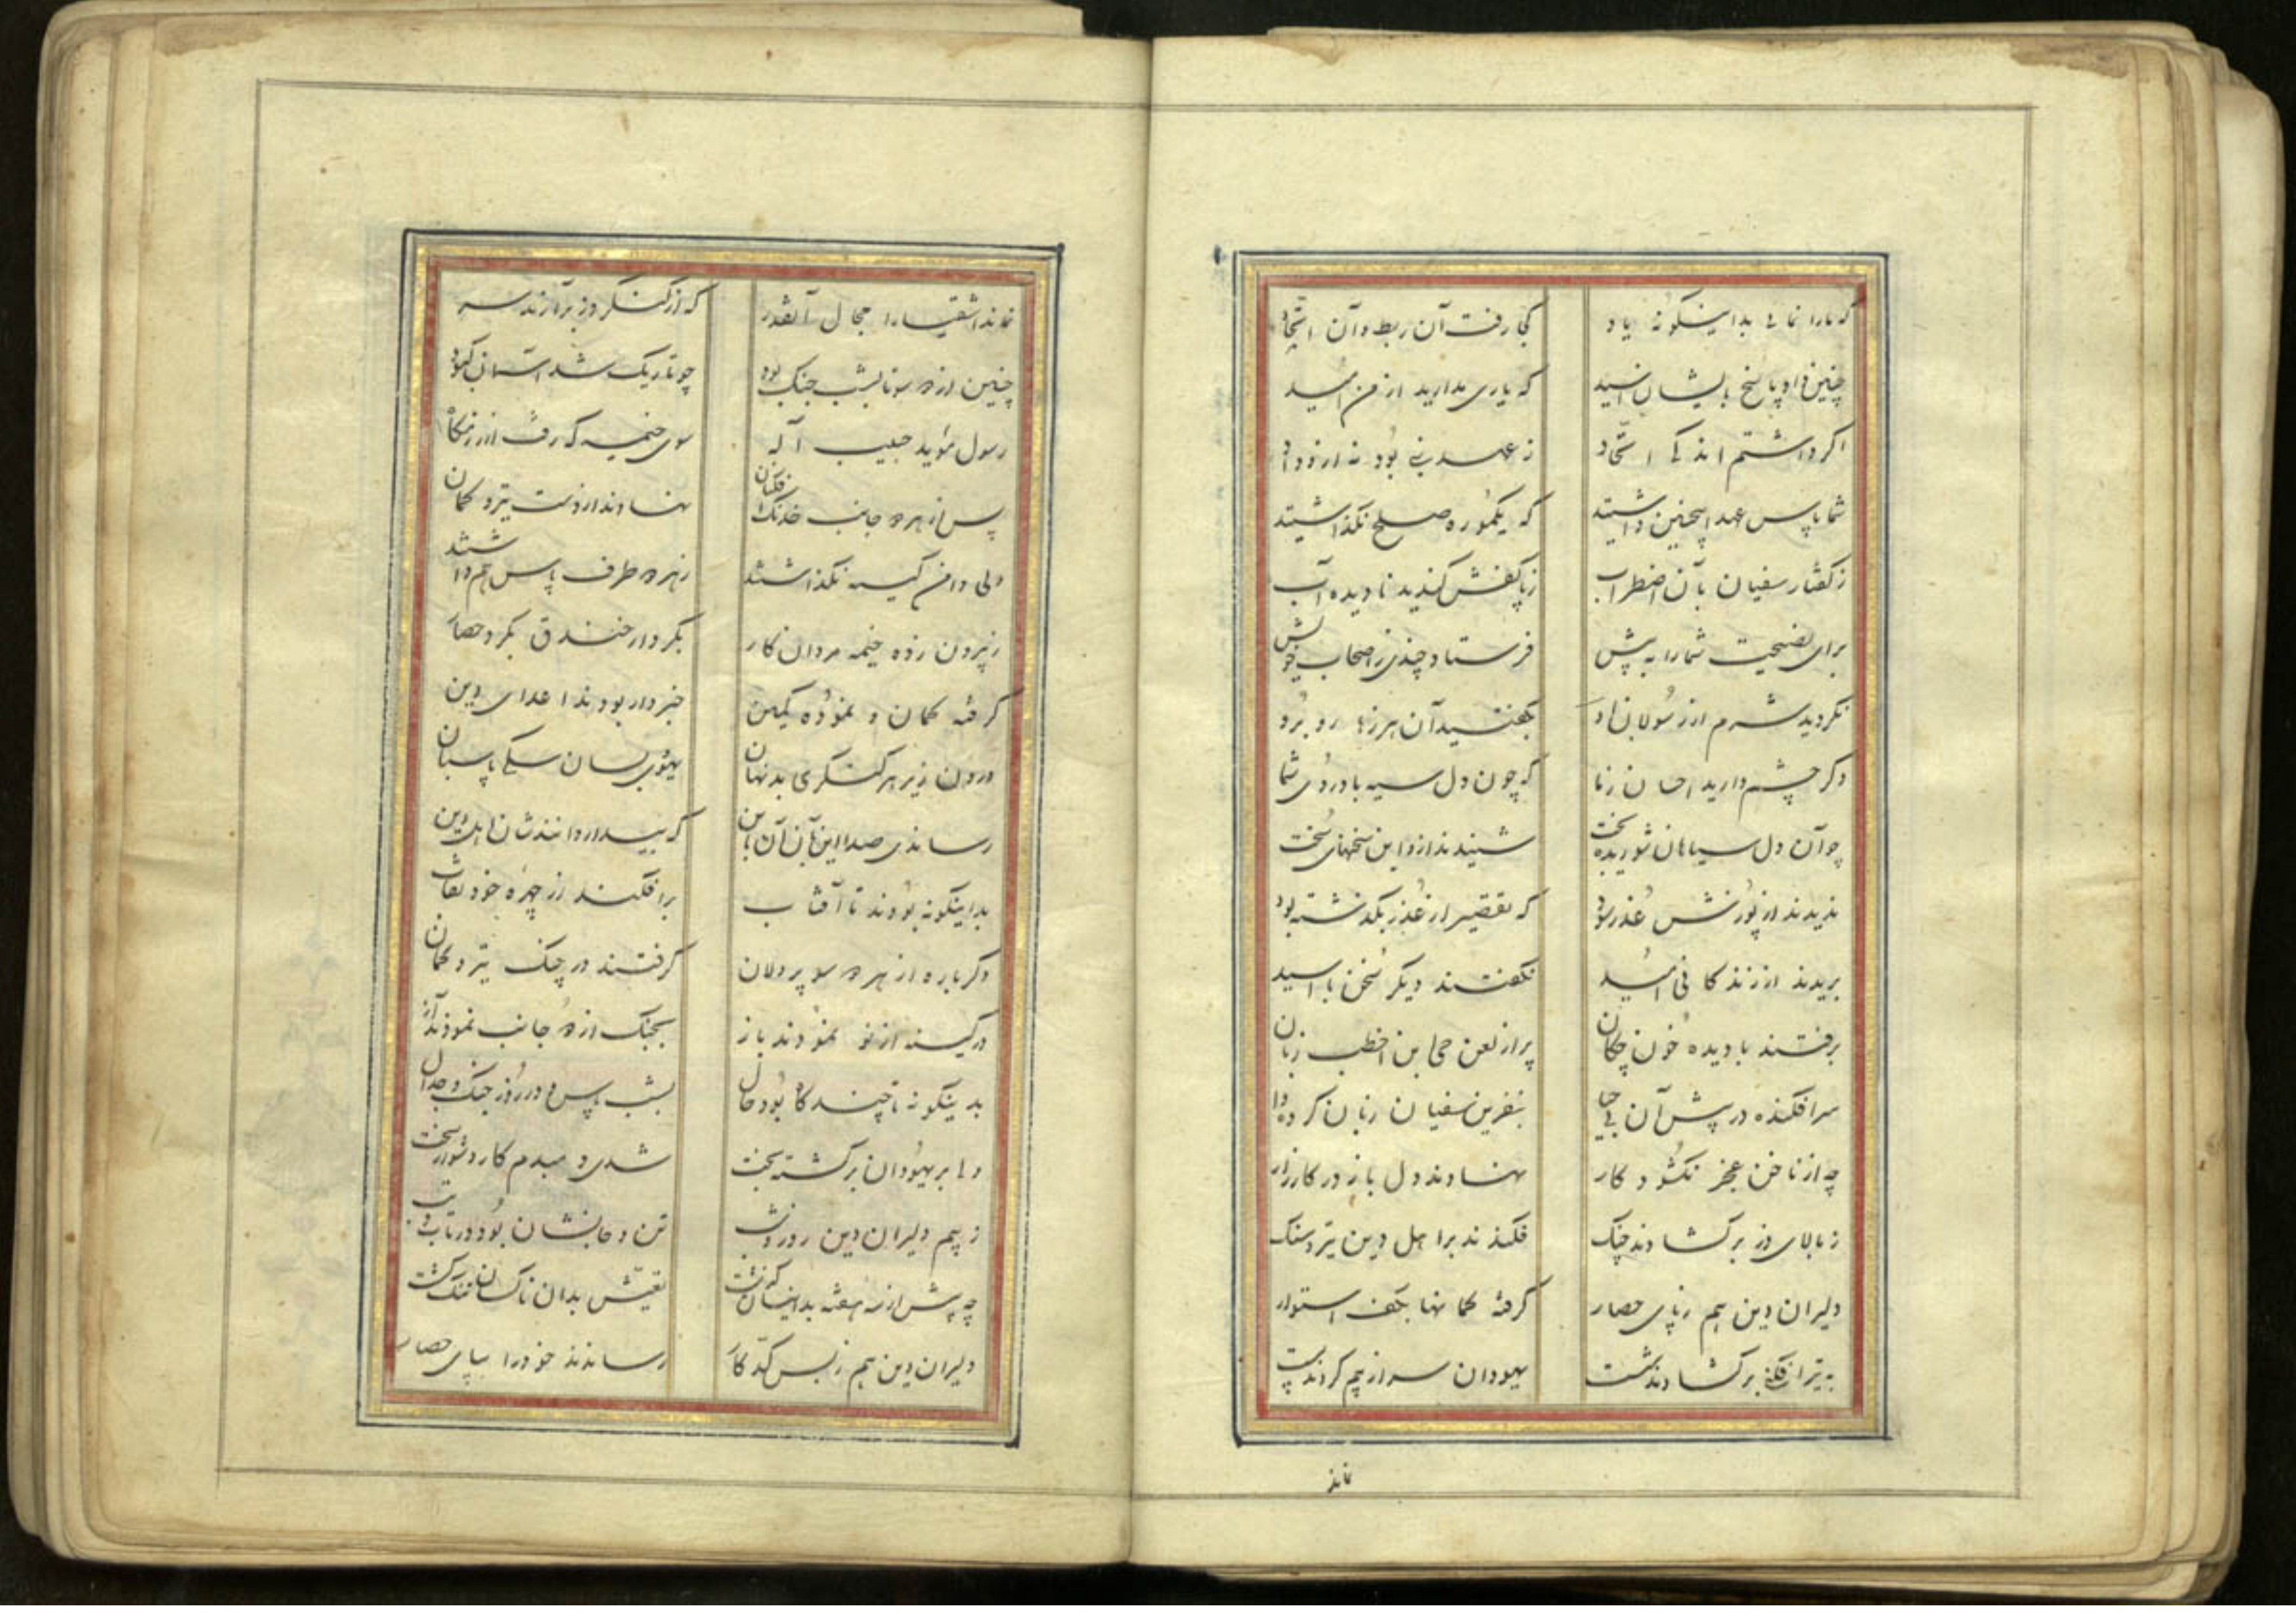 که ما را نمائی بداینگونه یاد کجا رفت آن ربط و آن اتحاد
چنین داد پاسخ بایشان اسید که یاری مدارید از من امید
اگر داشتم اندکی اتحاد ز عهد نبی بود نه از وداد
شما پاس عهد اینچنین داشتید که یکمو ره صلح نگذاشتید
ز گفتار سفیان بآن اضطراب ز پا کفش کندید نادیده آب
برای نصیحت شما را به پیش فرستاد چندی ز اصحاب خویش
نکردید شرم از رسولان او بگفتید آن هرزها رو برو
دگر چشم دارید احسان زما که چون دل سیه باد روی شما
چو آن دل سیاهان شوریده بخت شنیدند ازو این سخنهای سخت
ندیدند از پوزش عذر سود که تقصیر از عذر بگذشته بود
بریدند از زندگانی امید نگفتند دیگر سخن با اسید
برفتند با دیده خون چکان پر از لعن حی ابن اخطب زبان
سرافکنده در پیش آن بی حیا بنفرین سفیان زبان کرده وا
چه از ناخن عجز نکشود کار نهادند دل باز در کارزار
ز بالای دز برگشادند چنگ فکندند بر اهل دین تیر و سنگ
دلیران دین هم ز پای حصار گرفته کمانها بکف استوار
به تیر افکنی برگشادند شست یهودان سر از بیم کردند پست
نماند
نماند اشقیا را مجال آنقدر که از کنگر دز برآرند سر
چنین از دو سو تا بشب جنگ بود چو تاریک شد آسمان کبود
رسول مؤید حبیب آله سوی خیمه گه رفت از رزمگاه
پس از هر دو جانب خدنگ افکنان نهادند از دست تیر و کمان
ولی دامن کینه نگذاشتند ز هر دو طرف پاس هم داشتند
ز بیرون زده خیمه مردان کار بکردار خندق بگرد حصار
گرفته کمان و نموده کمین خبردار بودند اعدای دین
درون زیر هر کنگری بد نهان یهودی بسان سگی پاسبان
رساندی صدا این بآن آن باین که بیدار دانندشان اهل دین
بداینگونه بودند تا آفتاب برافکند از چهره خود نقاب
دگر باره از هر دو سو پردلان گرفتند در چنگ تیر و کمان
در کینه از نو نمودند باز بجنگ از دو جانب نمودند آغاز
بدینگونه تا چند گاه بود حال بشب پاس و در روز جنگ و جدال
ولی بر یهودان برگشته بخت شدی دمبدم کار دشوار سخت
ز بیم دلیران دین روز و شب تن و جانشان بود در تاب و تب
چه بیش از سه هفته بدانسان گذشت تعیش بدان ناکسان تنگ گشت
دلیران دین هم ز بس کد کار رساندند خود را بپای حصار